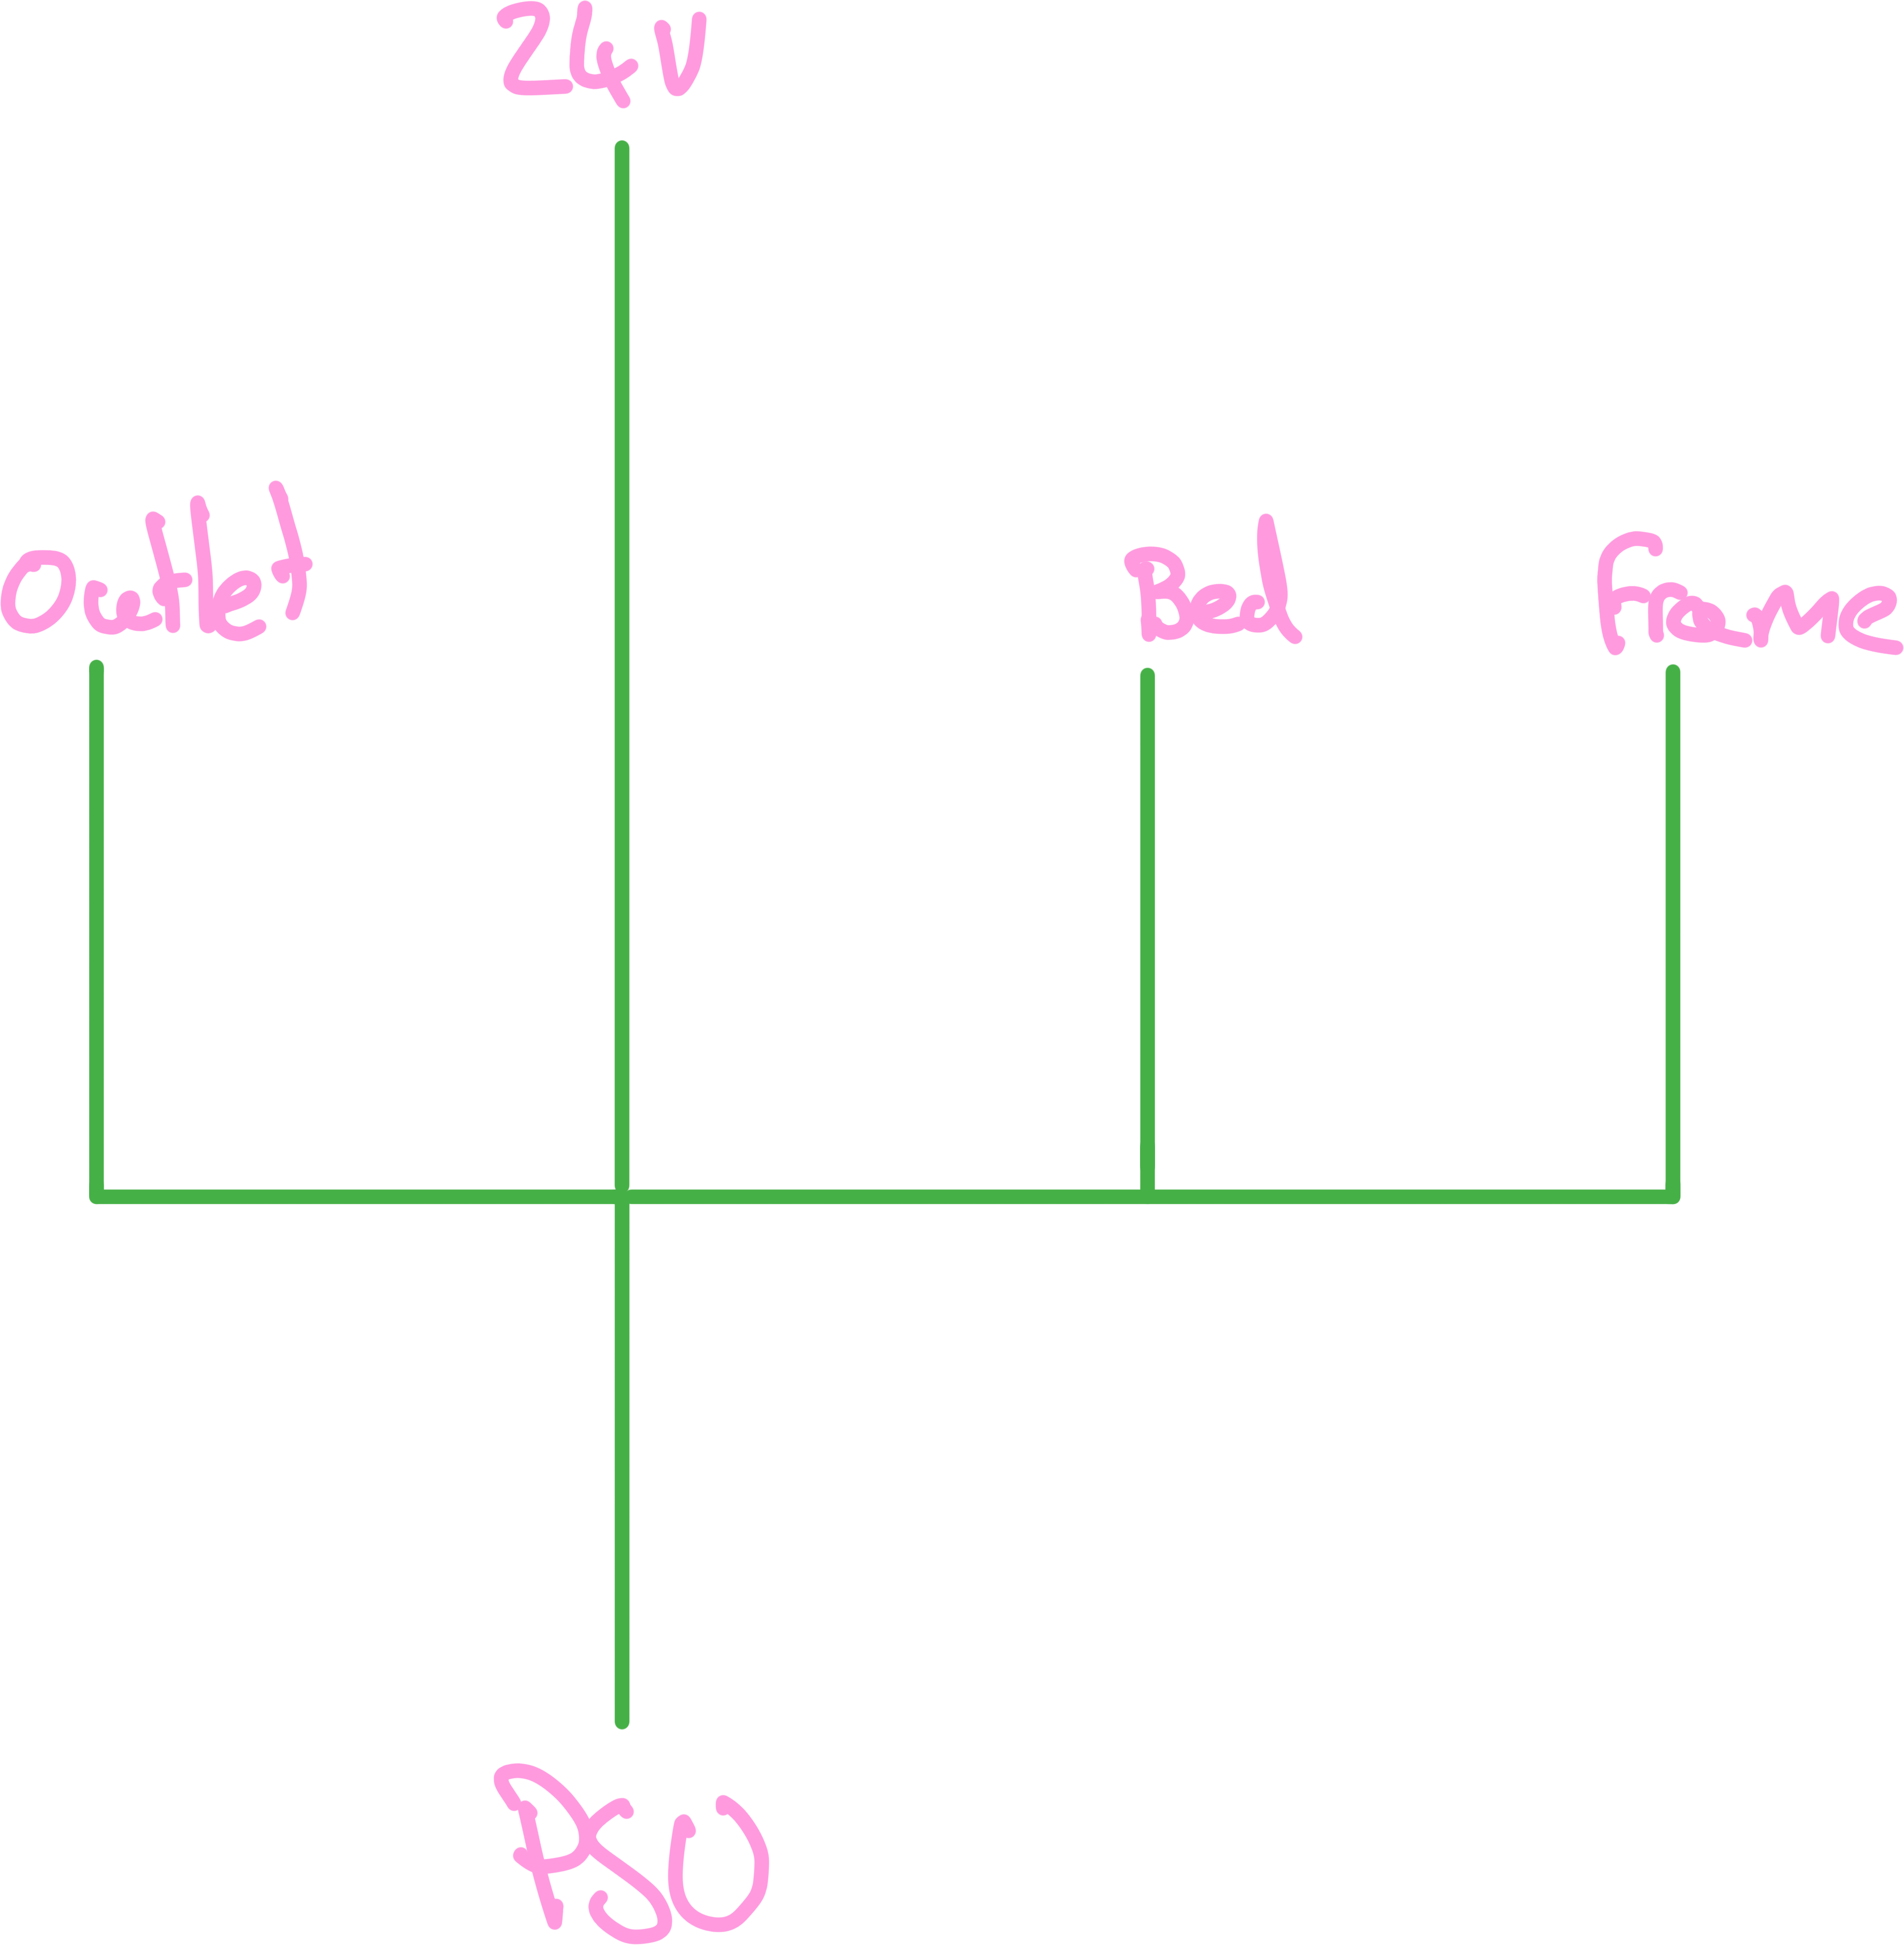 24v
Outlet
Bed
Frame
PSU